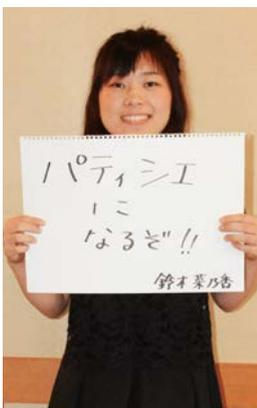 パティシエ
に
なるぞ!!
鈴木菜乃香